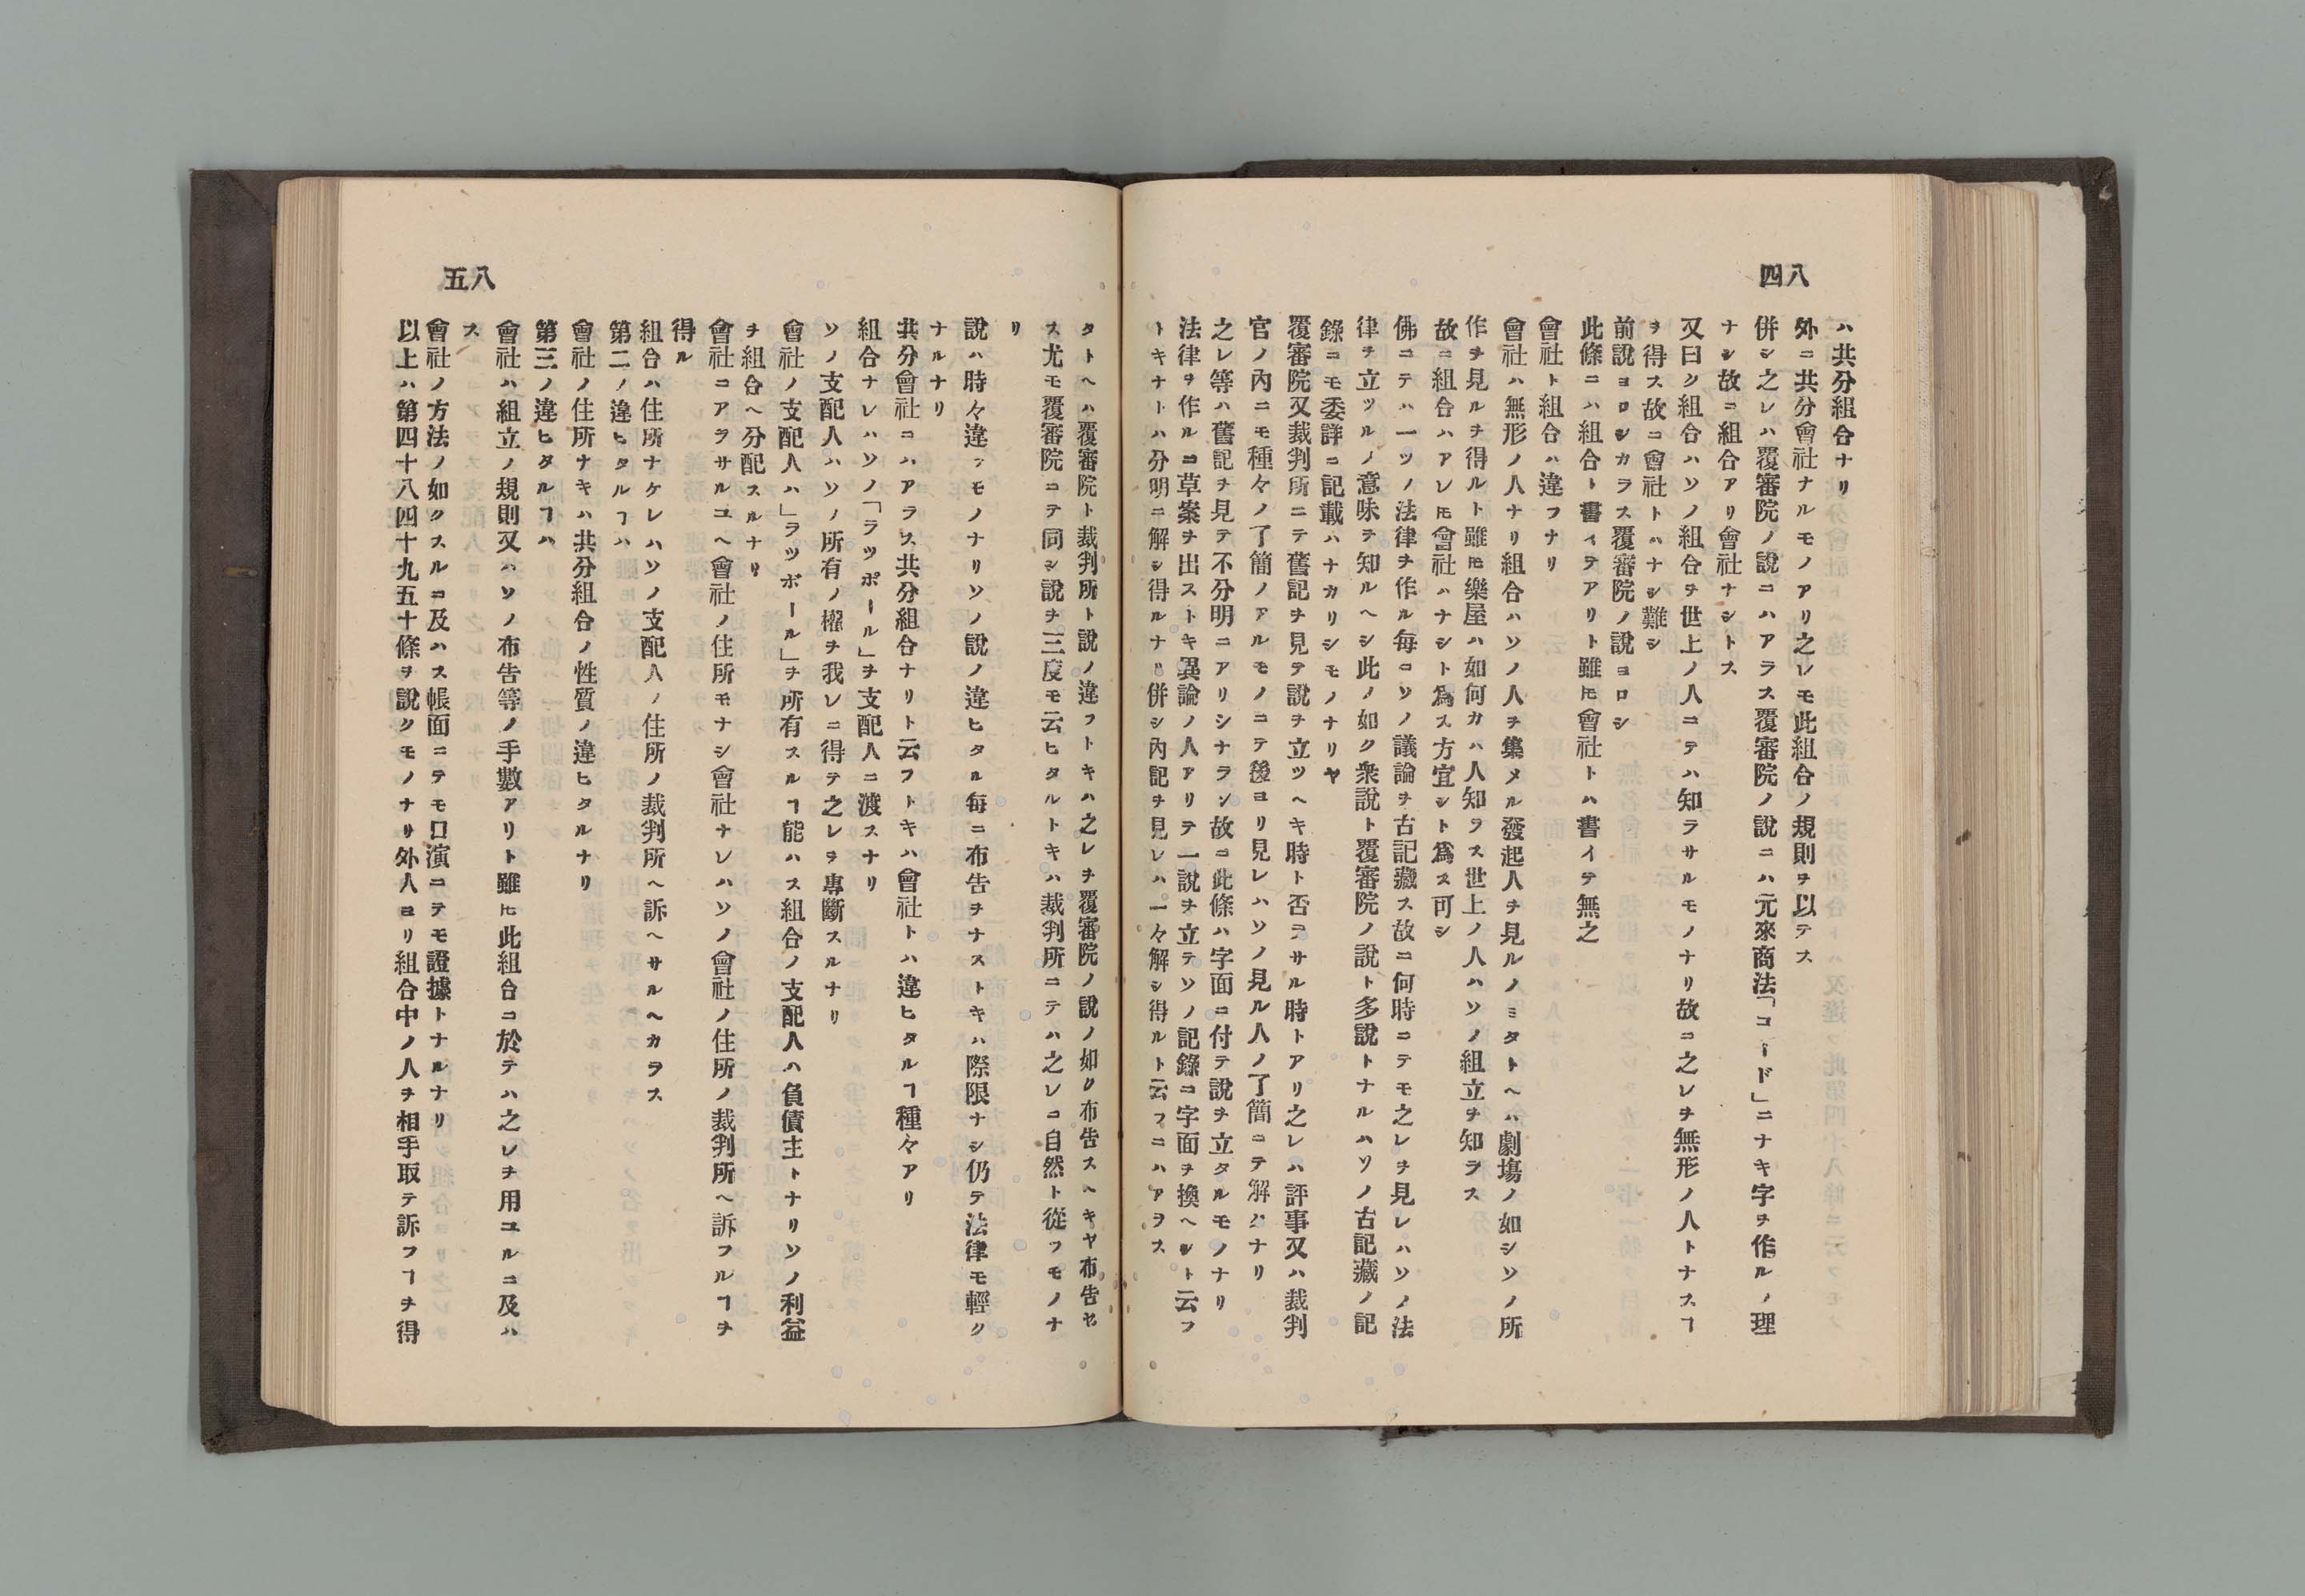 八四
ハ共分組合ナリ
外ニ共分會社ナルモノアリ之レモ此組合ノ規則ヲ以テス
併シ之レハ覆審院ノ說ニハアラス覆審院ノ說ニハ元來商法「コード」ニナキ字ヲ作ルノ理
ナシ故ニ組合アリ會社ナシトス
又曰ク組合ハソノ組合ヲ世上ノ人ニテハ知ラサルモノナリ故ニ之レヲ無形ノ人トナスヿ
ヲ得ス故ニ會社トハナシ難シ
前說ヨロシカラス覆審院ノ說ヨロシ
此條ニハ組合ト書イテアリト雖𪜈會社トハ書イテ無之
會社ト組合ハ違フナリ
會社ハ無形ノ人ナリ組合ハソノ人ヲ集メル發起人ヲ見ルノミタトヘハ劇場ノ如シソノ所
作ヲ見ルヲ得ルト雖𪜈樂屋ハ如何カハ人知ラス世上ノ人ハソノ組立ヲ知ラス
故ニ組合ハアレ𪜈會社ハナシト爲ス方宜シト爲ス可シ
佛ニテハ一ツノ法律ヲ作ル每ニソノ議論ヲ古記藏ス故ニ何時ニテモ之レヲ見レハソノ法
律ヲ立ツルノ意味ヲ知ルヘシ此ノ如ク衆說ト覆審院ノ說ト多說トナルハソノ古記藏ノ記
錄ニモ委詳ニ記載ハナカリシモノナリヤ
覆審院又裁判所ニテ舊記ヲ見テ說ヲ立ツヘキ時ト否ラサル時トアリ之レハ評事又ハ裁判
官ノ內ニモ種々ノ了簡ノアルモノニテ後ヨリ見レハソノ見ル人ノ了簡ニテ解ハナリ
之レ等ハ舊記ヲ見テ不分明ニアリシナラン故ニ此條ハ字面ニ付テ說ヲ立タルモノナリ
法律ヲ作ルニ草案ヲ出ストキ異論ノ人アリテ一說ヲ立テソノ記錄ニ字面ヲ換ヘシト云フ
トキナトハ分明ニ解シ得ルナリ併シ內記ヲ見レハ一々解シ得ルト云フニハアラス
八五
タトヘハ覆審院ト裁判所ト說ノ違フトキハ之レヲ覆審院ノ說ノ如ク布告スヘキヤ布告セ
ス尤モ覆審院ニテ同シ說ヲ三度モ云ヒタルトキハ裁判所ニテハ之レニ自然ト從フモノナ
リ
說ハ時々違フモノナリソノ說ノ違ヒタル每ニ布告ヲナストキハ際限ナシ仍テ法律モ輕ク
ナルナリ
共分會社ニハアラス共分組合ナリト云フトキハ會社トハ違ヒタルヿ種々アリ
組合ナレハソノ「ラツポール」ヲ支配人ニ渡スナリ
ソノ支配人ハソノ所有ノ權ヲ我レニ得テ之レヲ專斷スルナリ
會社ノ支配人ハ「ラツポール」ヲ所有スルヿ能ハス組合ノ支配人ハ負債主トナリソノ利益
ヲ組合ヘ分配スルナリ
會社ニアラサルユヘ會社ノ住所モナシ會社ナレハソノ會社ノ住所ノ裁判所ヘ訴フルヿヲ
得ル
組合ハ住所ナケレハソノ支配人ノ住所ノ裁判所ヘ訴ヘサルヘカラス
第二ノ違ヒタルヿハ
會社ノ住所ナキハ共分組合ノ性質ノ違ヒタルナリ
第三ノ違ヒタルヿハ
會社ハ組立ノ規則又ハソノ布告等ノ手數アリト雖𪜈此組合ニ於テハ之レヲ用ユルニ及ハ
ス
會社ノ方法ノ如クスルニ及ハス帳面ニテモ口演ニテモ證據トナルナリ
以上ハ第四十八四十九五十條ヲ說クモノナリ外人ヨリ組合中ノ人ヲ相手取テ訴フヿヲ得